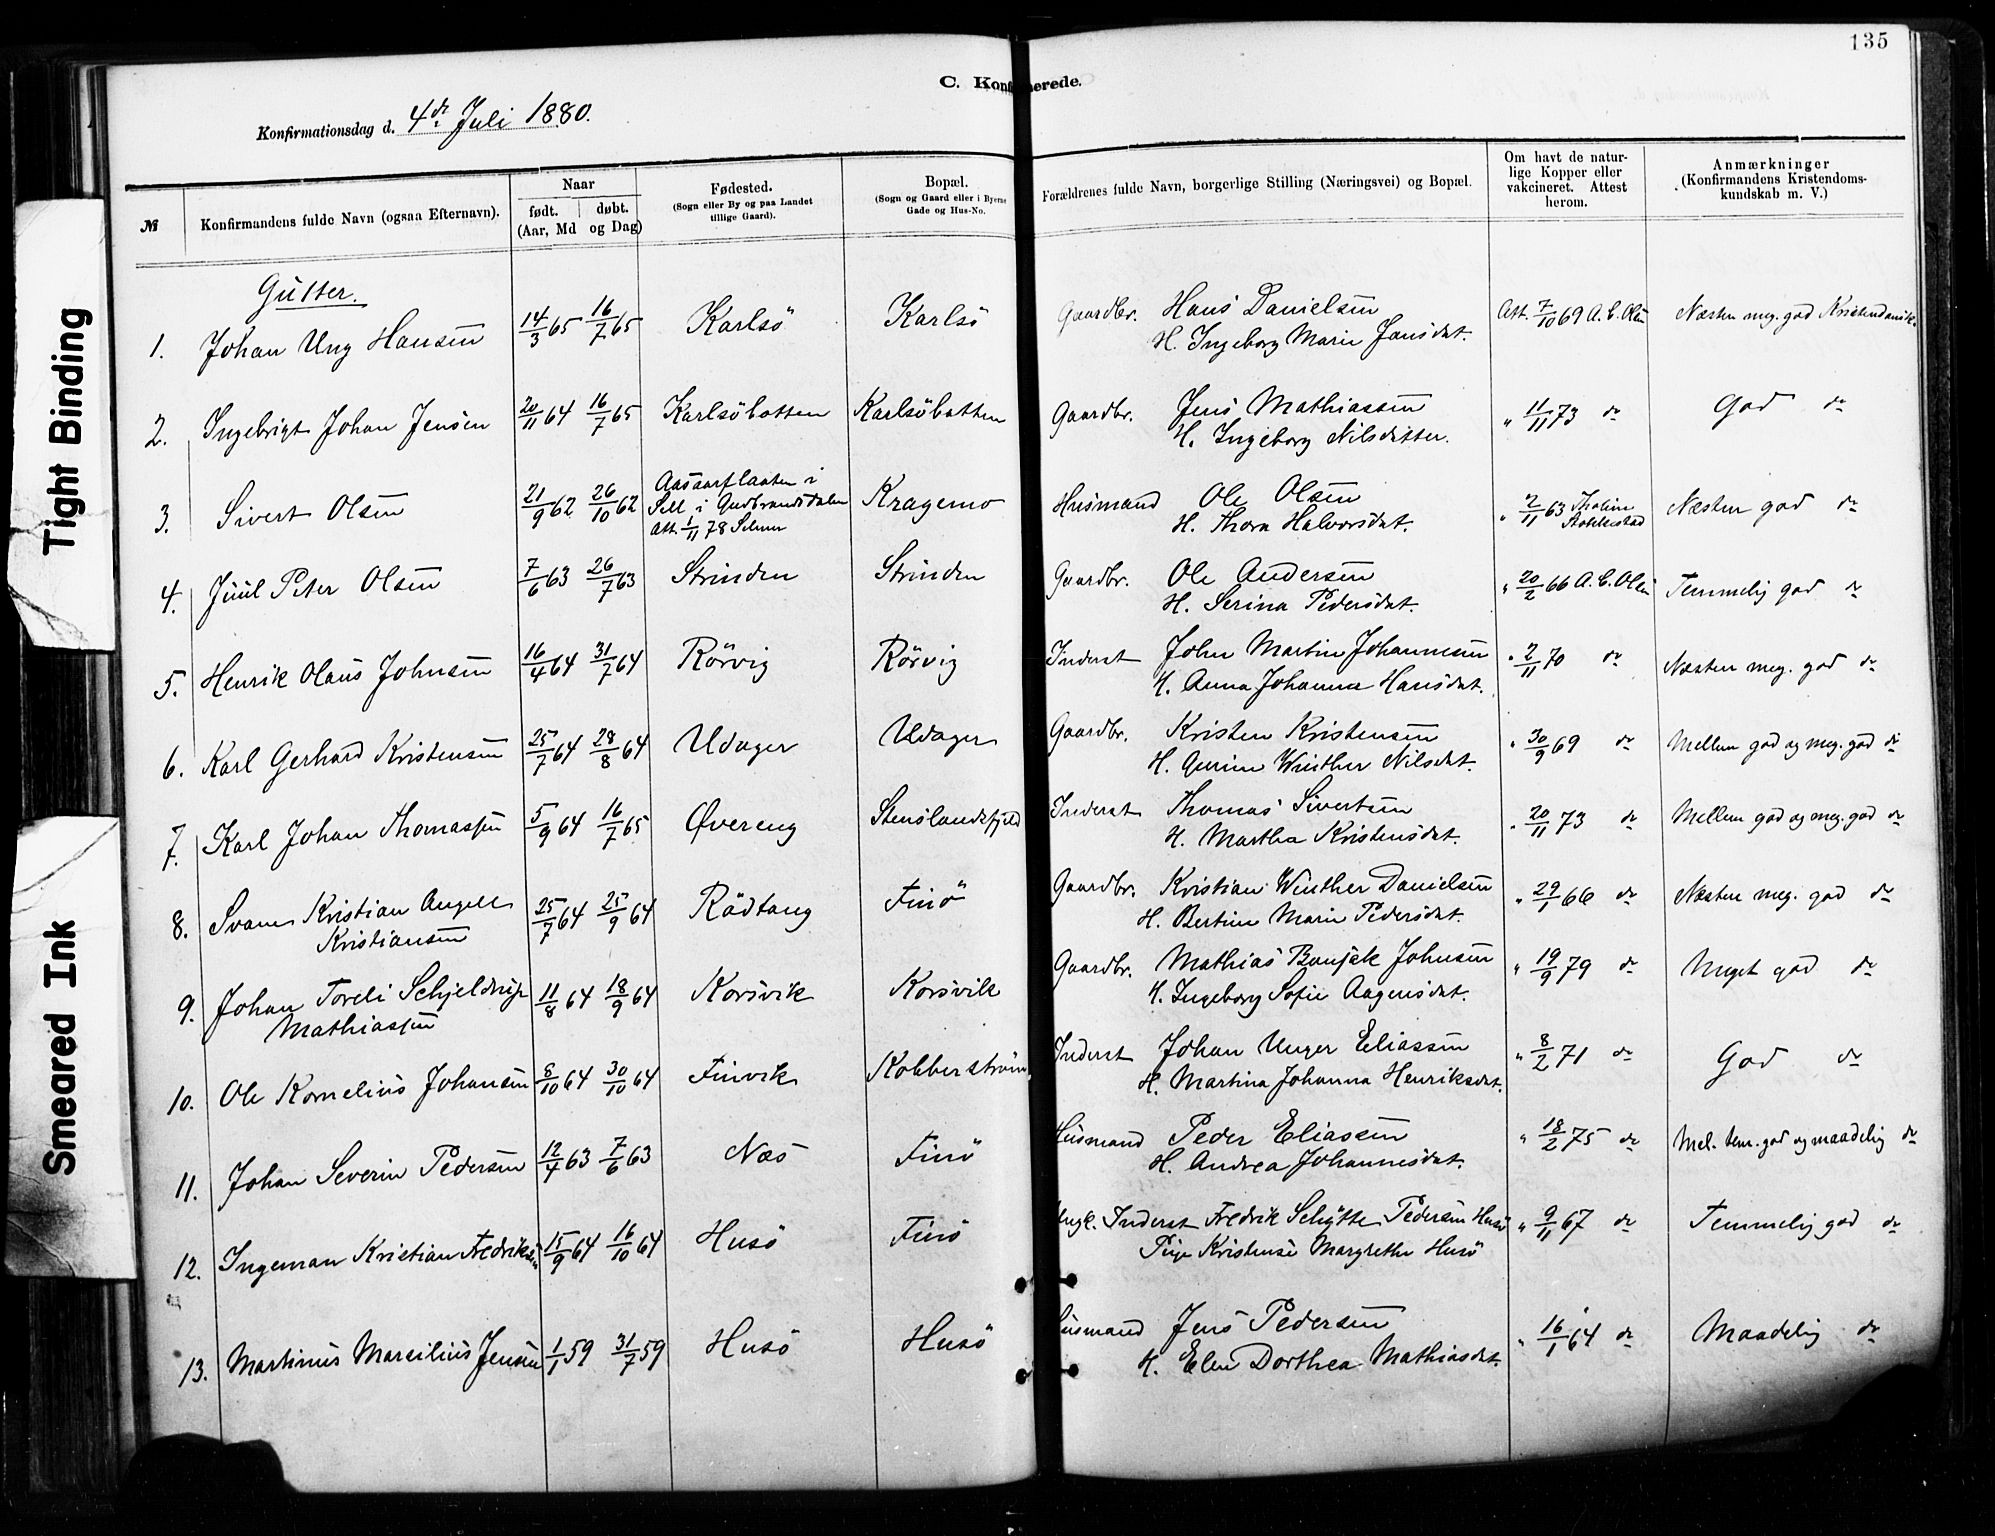 135
C. Konfirmerede.
Konfirmationsdag d. 4de Juli 1880.
№
Konfirmandens fulde Navn (ogsaa Efternavn).
Naar
født. døbt.
(Aar, Md og Dag)
Fødested.
(Sogn eller By og paa Landet
tillige Gaard).
Bopæl.
(Sogn og Gaard eller i Byerne
Gade og Hus-No.
Forældrenes fulde Navn, borgerlige Stilling (Næringsvei) og Bopæl.
Om havt de natur-
lige Kopper eller
vakcineret. Attest
herom.
Anmærkninger
(Konfirmandens Kristendoms-
kundskab m. V.)
Gutter.
1. Johan Ung Hansen 14/3 65 16/7 65 Karlsö Karlsö Gaardbr. Hans Danielsen Att. 7/10 69 A. C. Olsen Næsten meg. god Kristendomsk.
H. Ingeborg Marie Jansdat.
2. Ingebrigt Johan Jensen 20/11 64 16/7 65 Karlsöbotten Karlsöbotten Gaardbr. Jens Mathiassen " 11/11 73 do God do
H. Ingeborg Nilsdatter.
3. Sivert Olsen 21/9 62 26/10 62 Aasaarflaaten i
Sell i Gudbrandsdalen
Att. 1/11 78 Kragemo Husmand Ole Olsen " 2/11 63 Næsten god do
H. Thora Halvorsdat.
4. Juul Peter Olsen 7/6 63 26/7 63 Strinden Strinden Gaardbr. Ole Andersen " 20/2 66 A. C. Olsen Temmelig god do
H. Serina Pedersdat.
5. Henrik Olaus Johnsen 16/4 64 31/7 64 Rörvig Rörvig Inderst John Martin Johannesen " 2/11 70 do Næsten meg. god do
H. Anna Johanna Hansdat.
6. Karl Gerhard Kristensen 25/7 64 28/8 64 Udager Udager Gaardbr. Kristen Kristensen " 30/9 69 do Mellem god og meg. god do
H. Gurine Winther Nilsdat.
7. Karl Johan Thomassen 5/9 64 16/7 65 Övereng Stenslandsfjeld Inderst Thomas Sivertsen " 20/11 73 do Mellem god og meg. god do
H. Martha Kristensdat.
8. Svane Kristian Angell
Kristiansen 25/7 64 25/9 64 Rödtang Finö Gaardbr. Kristian Winther Danielsen " 29/1 66 do Næsten meg. god do
H. Bertine Marie Pedersdat.
9. Johan Toreli Schjeldrup
Mathiassen 11/8 64 18/9 64 Korsvik Korsvik Gaardbr. Mathias Bonsak Johnsen " 19/9 79 do Meget god do
H. Ingeborg Sofie Aagensdat.
10. Ole Kornelius Johansen 8/10 64 30/10 64 Finvik Kobberström Inderst Johan Unger Eliassen " 8/2 71 do God do
H. Martina Johanna Henriksdat.
11. Johan Severin Pedersen 12/4 63 7/6 63 Næs Finö Husmand Peder Eliasen " 18/2 75 do Mel. tem. god og maadelig do
H. Andrea Johannesdat.
12. Ingeman Kristian Fredriksen 15/9 64 16/10 64 Husö Finö Ungk. Inderst Fredrik Schytte Pedersen Husö " 9/11 67 do Temmelig god do
Pige Kristense Margrethe Husö
13. Martinus Marselius Jensen 1/1 59 31/7 59 Husö Husö Husmand Jens Pedersen " 16/1 64 do Maadelig do
H. Elen Dorthea Mathiasdat.
Tight Binding
Smeared Ink